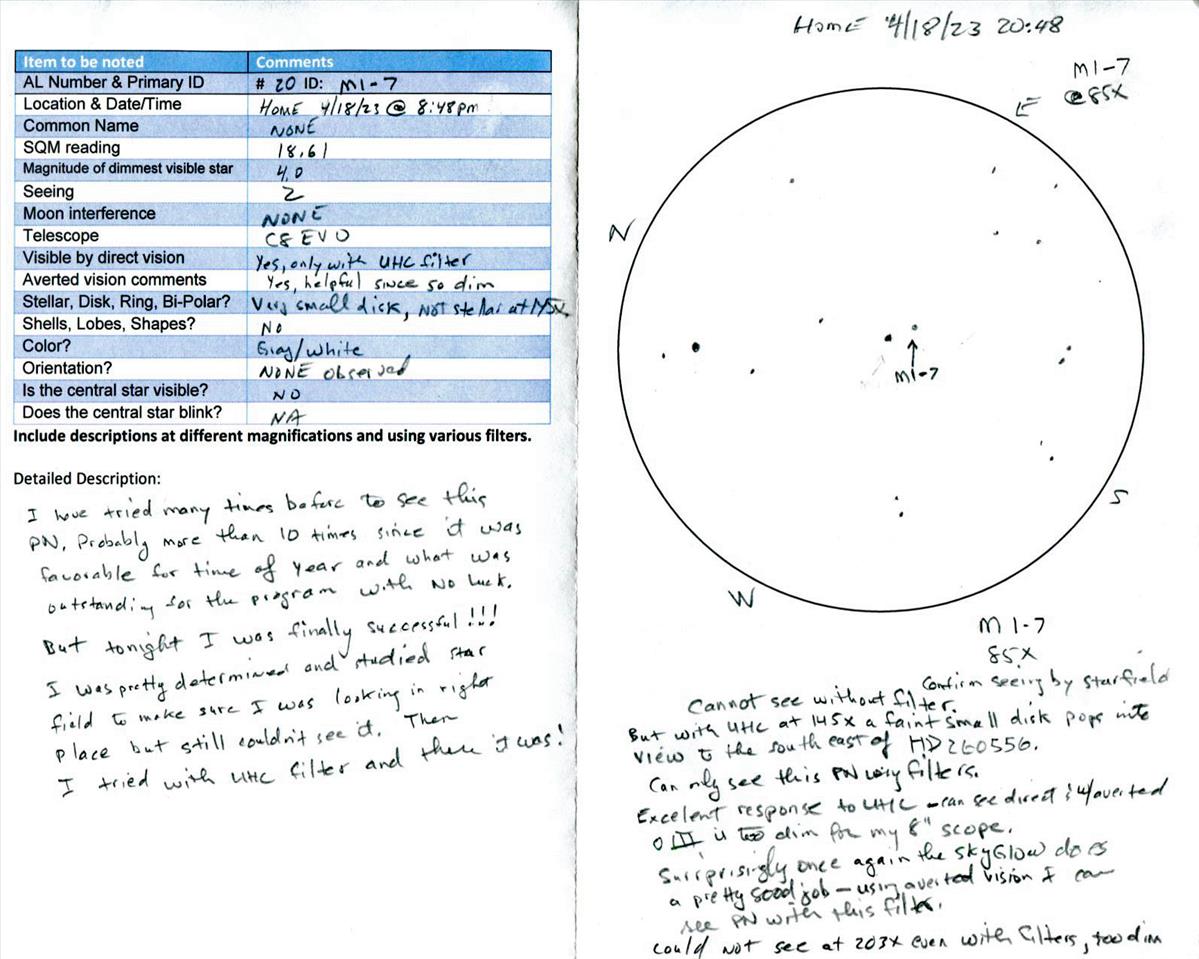 Item to be noted Comments
AL Number & Primary ID # 20 ID: M1-7
Location & Date/Time HOME 4/18/23 @ 8:48pm
Common Name NONE
SQM reading 18.61
Magnitude of dimmest visible star 4.0
Seeing 2
Moon interference NONE
Telescope C8 EVO
Visible by direct vision Yes, only with UHC filter
Averted vision comments Yes, helpful since so dim
Stellar, Disk, Ring, Bi-Polar? Very small disk, NOT stellar at 145X
Shells, Lobes, Shapes? NO
Color? Gray/white
Orientation? NONE observed
Is the central star visible? NO
Does the central star blink? NA
Include descriptions at different magnifications and using various filters.
Detailed Description:
I have tried many times before to see this
PN, Probably more than 10 times since it was
favorable for time of year and what was
outstanding for the program with No luck.
But tonight I was finally successful!!!
I was pretty determined and studied star
field to make sure I was looking in right
place but still couldn't see it. Then
I tried with UHC filter and there it was!
HOME 4/18/23 20:48
M1-7
@85X
N
M1-7
S
W
M1-7
85X
Confirm seeing by starfield
Cannot see without filter.
But with UHC at 145x a faint small disk pops into
view to the south east of HD260556.
Can only see this PN using filters.
Excelent response to UHC - can see direct & w/averted
OIII is too dim for my 8" scope.
Surrprisingly once again the SkyGlow does
a pretty good job - using averted vision I can
see PN with this filter.
Could not see at 203X even with filters, too dim